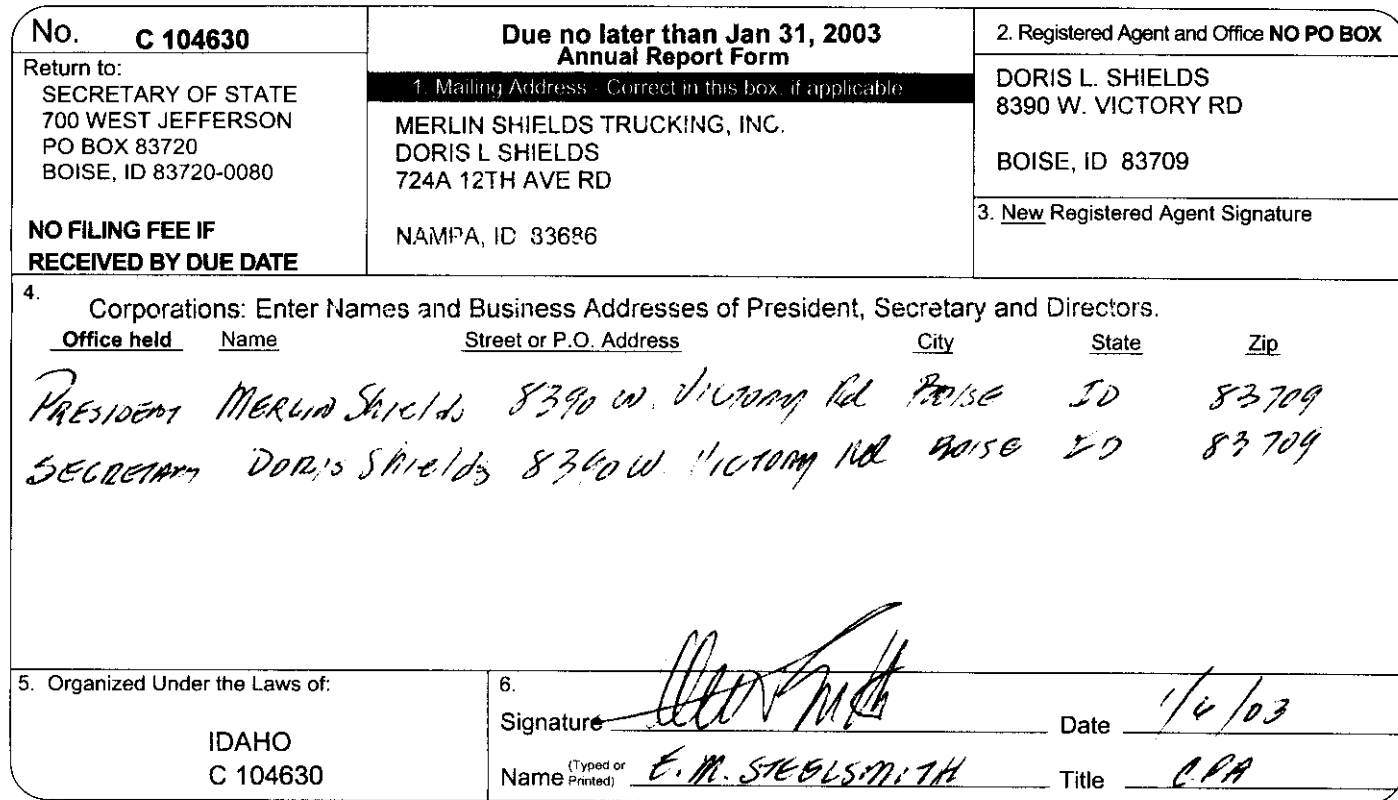 No. C 104630
Return to:
SECRETARY OF STATE
700 WEST JEFFERSON
PO BOX 83720
BOISE, ID 83720-0080
NO FILING FEE IF
RECEIVED BY DUE DATE
Due no later than Jan 31, 2003
Annual Report Form
1. Mailing Address - Correct in this box, if applicable
MERLIN SHIELDS TRUCKING, INC.
DORIS L SHIELDS
724A 12TH AVE RD
NAMPA, ID 83686
2. Registered Agent and Office NO PO BOX
DORIS L. SHIELDS
8390 W. VICTORY RD
BOISE, ID 83709
3. New Registered Agent Signature
4. Corporations: Enter Names and Business Addresses of President, Secretary and Directors.
Office held Name Street or P.O. Address City State Zip
PRESIDENT MERLIN Shields 8390 W. VICTORY Rd BOISE ID 83709
SECRETARY DORIS Shields 8390 W. VICTORY Rd BOISE ID 83709
5. Organized Under the Laws of:
IDAHO
C 104630
6.
Signature Date 1/6/03
Name (Typed or Printed) E. M. STEELSMITH Title CPA